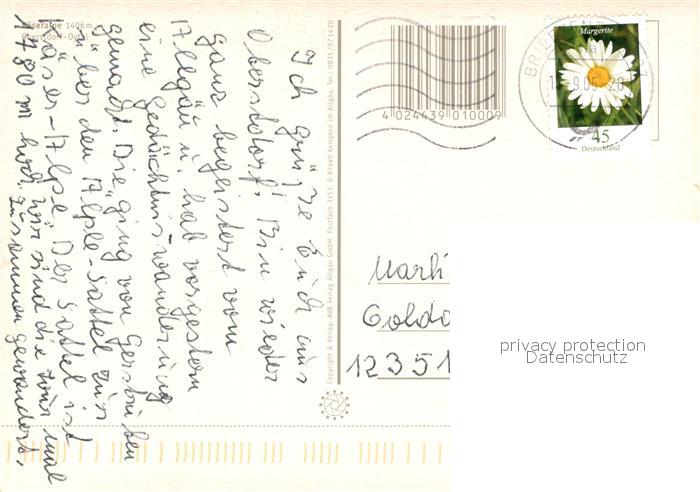 Käseralpe 1406 m
Oberstdorf-Oytal
Ich grüße Euch aus
Oberstdorf! Bin wieder
ganz begeistert vom
Allgäu u. hab vorgestern
eine Gedächtniswanderung
gemacht. Die ging von Gerstruben
über den Älple-Sattel zur
Käser-Alpe. Der Sattel ist
1780 m hoch. wir sind die Tour mal
zusammen gewandert.
Copyright & Verlag: AVA Verlag Allgäu GmbH, Postfach 3153, D-87440 Kempten im Allgäu, Tel.: 0831/571420
4 024439 010009
BRIEFZENTRUM
Margerite
45
Deutschland
12351
privacy protection
Datenschutz